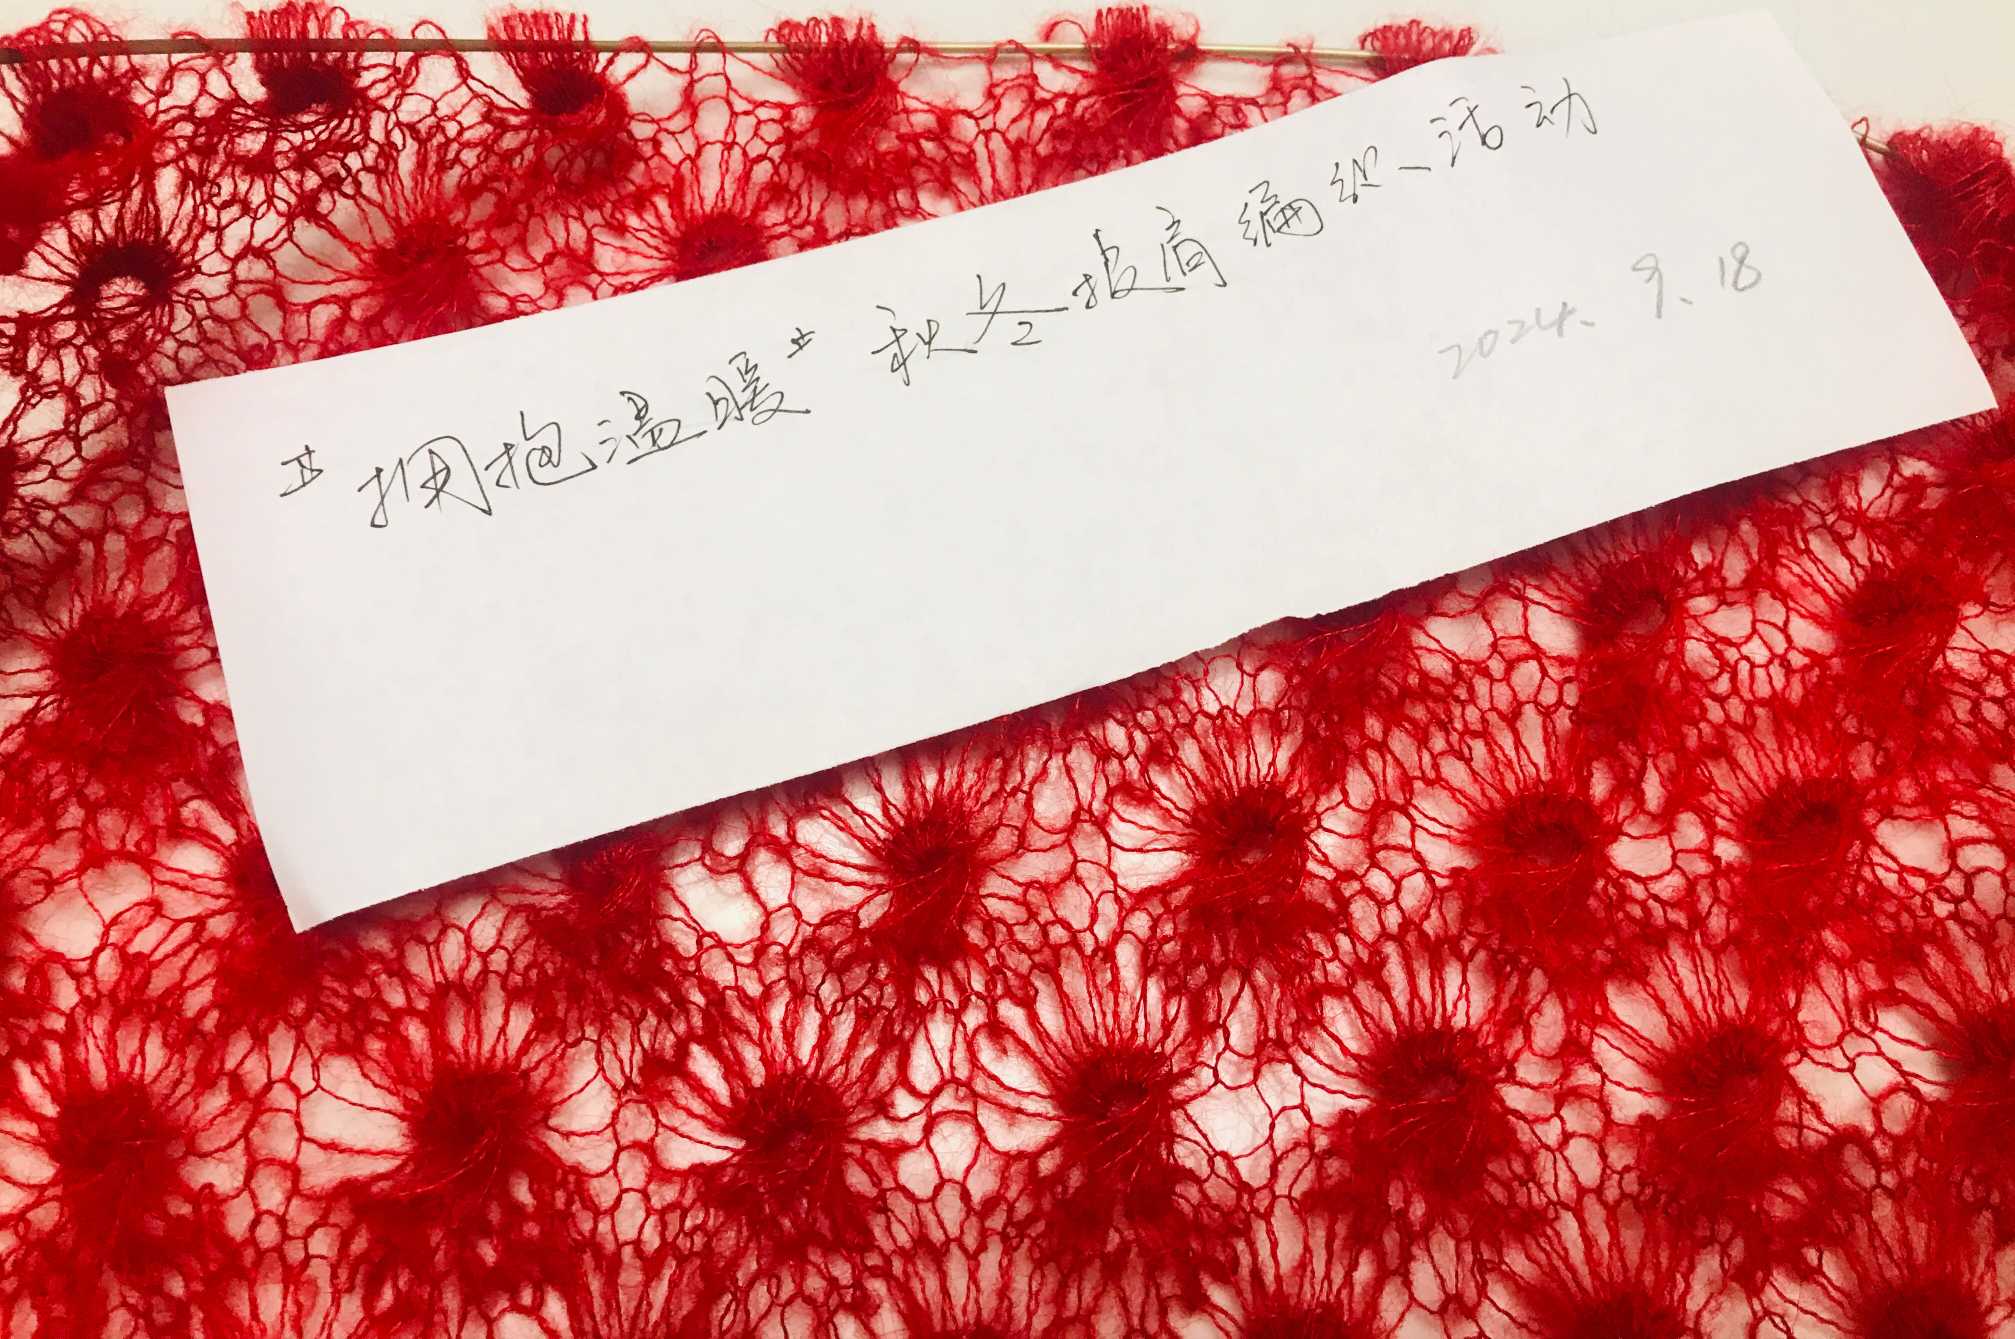 #拥抱温暖#秋冬披肩编织活动
2024.9.18